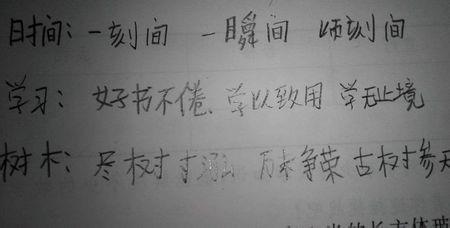 时间：一刻间 一瞬间 刻间
学习：好书不倦、学以致用 学无止境
树木：树 万木争荣 古树参天
的长方体玻